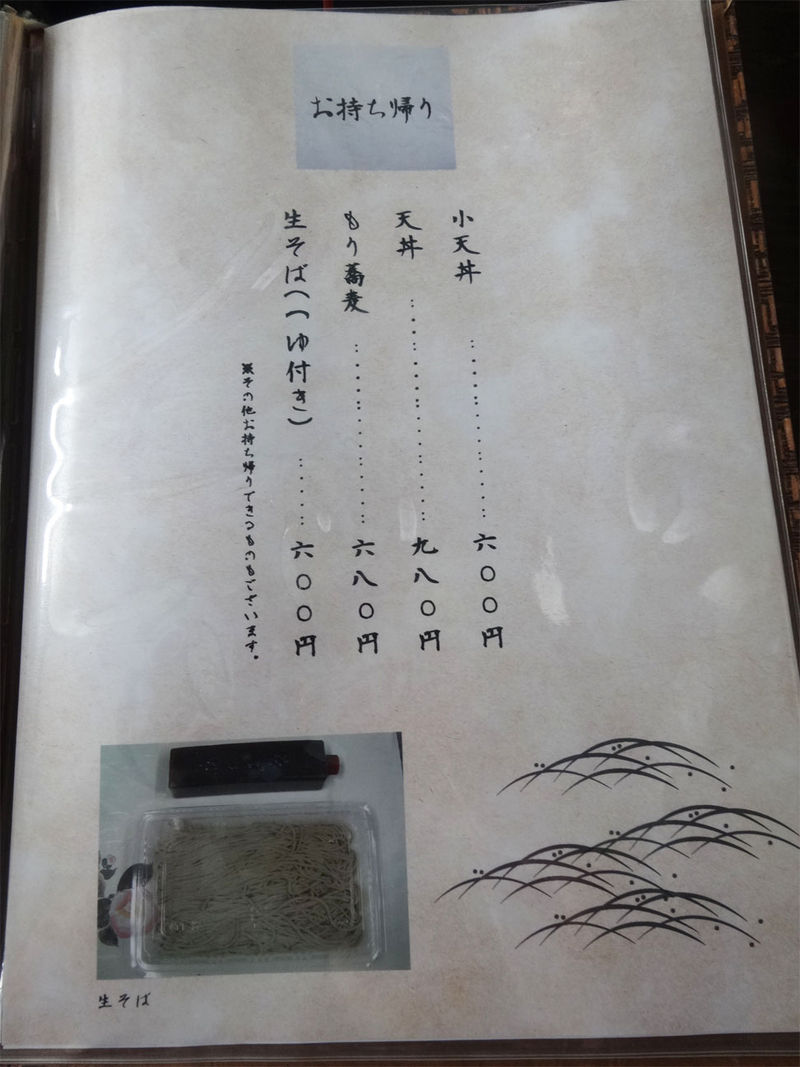 お持ち帰り
小天丼……………六〇〇円
天丼……………………九八〇円
もり蕎麦………………六八〇円
生そば(つゆ付き)……六〇〇円
※その他お持ち帰りできるものもございます。
生そば